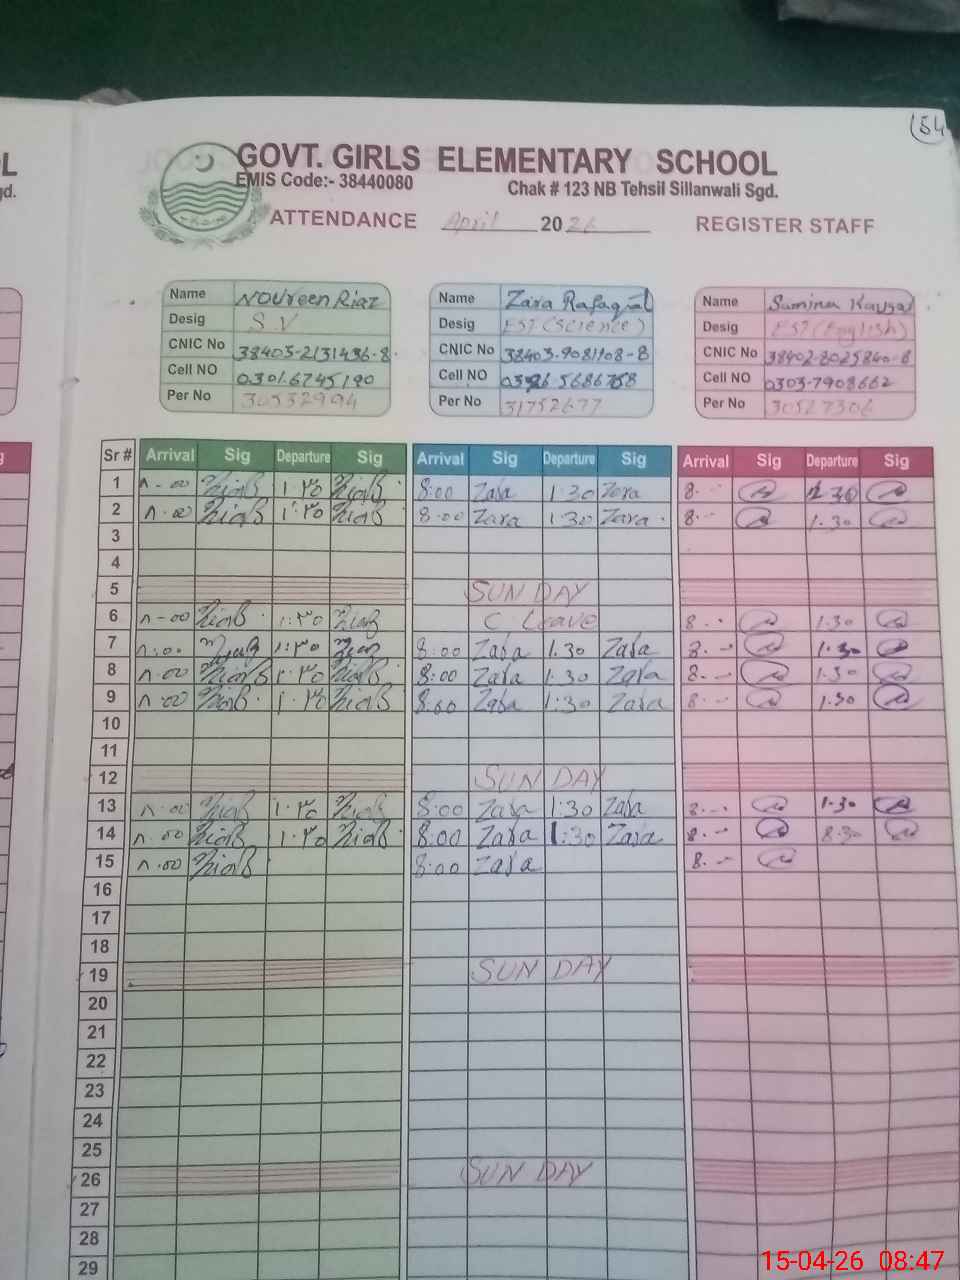 (54
L GOVT. GIRLS ELEMENTARY SCHOOL
gd. EMIS Code:- 38440080 Chak # 123 NB Tehsil Sillanwali Sgd.
ATTENDANCE April 2026 REGISTER STAFF
Name Noureen Riaz
Desig S.V
CNIC No 38403-2131436-8
Cell NO 0301.6745190
Per No 30532994
Name Zara Rafaqat
Desig EST (Science)
CNIC No 38403-9081108-8
Cell NO 0326-5686758
Per No 31752677
Name Samina Kausar
Desig EST (English)
CNIC No 38402-8025840-8
Cell NO 0303-7908662
Per No 30527306
g Sr # Arrival Sig Departure Sig Arrival Sig Departure Sig Arrival Sig Departure Sig
1 ٨-٠٠ ١٠٣٠ 8:00 Zara 1:30 Zara 8.-- 1.30
2 ٨.٠٠ ١٠٣٠ 8.00 Zara 1:30 Zara 8.-- 1.30
3
4
5 SUNDAY
6 ٨-٠٠ ١:٣٠ C Leave 8.-- 1.30
7 ٨:٠٠ ١:٣٠ 8:00 Zara 1.30 Zara 8.-- 1.30
8 ٨.٠٠ ١٠٣٠ 8:00 Zara 1:30 Zara 8.-- 1.30
9 ٨.٠٠ ١.٣٠ 8:00 Zara 1:30 Zara 8.-- 1.30
10
11
12 SUNDAY
13 ٨.٠٠ ١.٣٠ 8:00 Zara 1:30 Zara 8.-- 1.30
14 ٨.٠٠ ١.٣٠ 8:00 Zara 1:30 Zara 8.-- 8.30
15 ٨.٠٠ 8:00 Zara 8.--
16
17
18
19 SUNDAY
20
21
22
23
24
25
26 SUNDAY
27
28
29
15-04-26 08:47